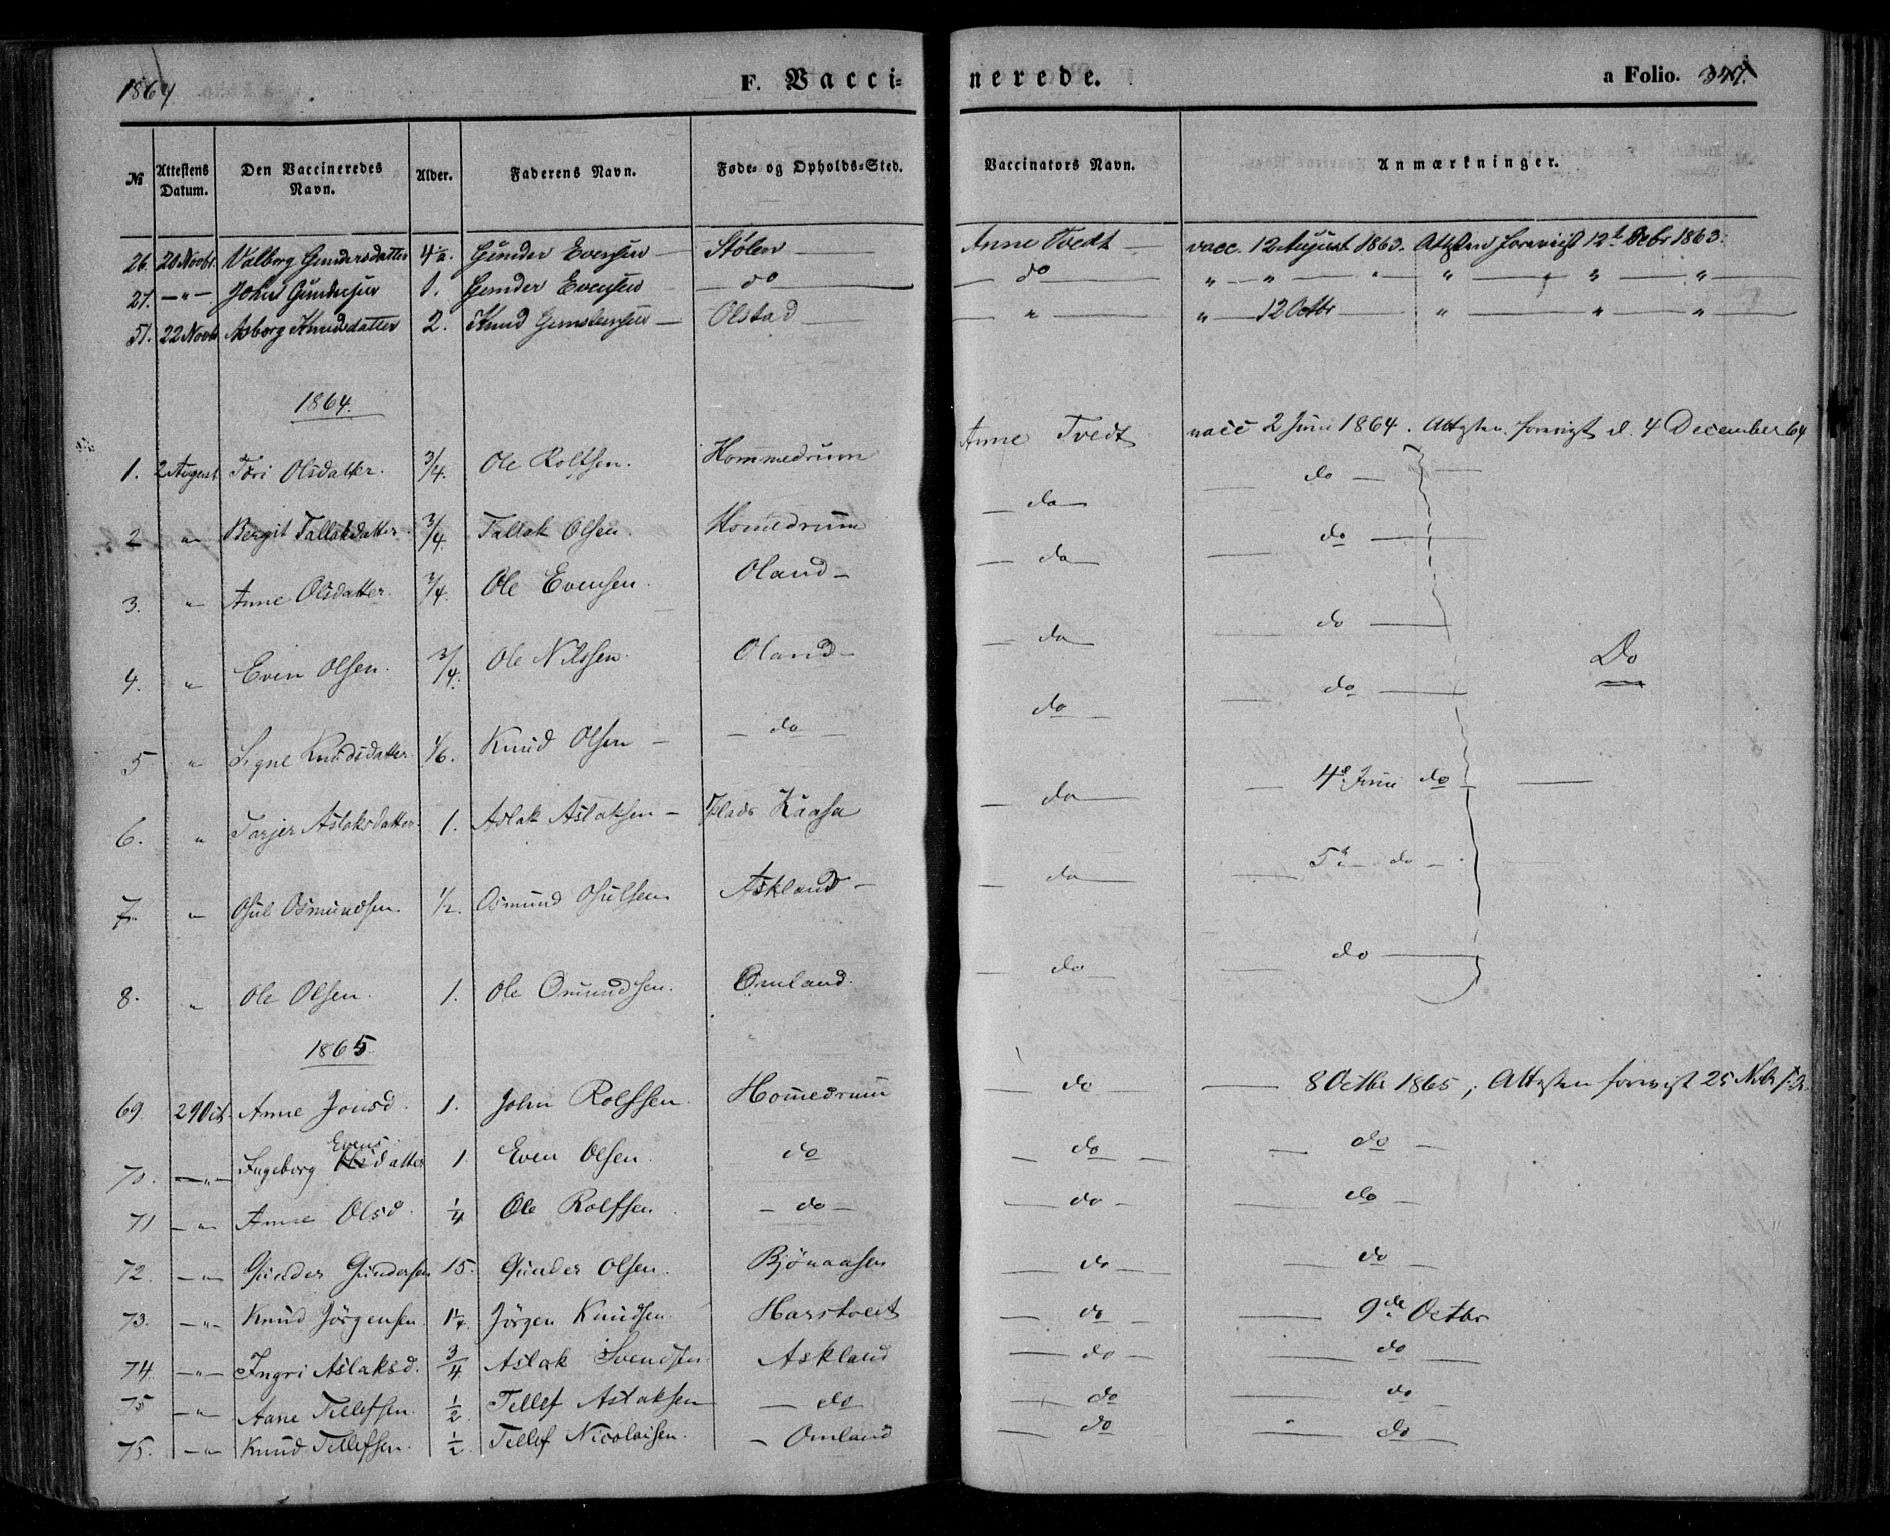 1864 F. Vaccinerede. a Folio. 347.
№ Attestens Datum. Den Vaccineredes Navn. Alder. Faderens Navn. Føde- og Opholds-Sted. Vaccinators Navn. Anmærkninger.
26. 20 Novbr. Valborg Gundersdatter 4½. Gunder Evensen — Stølen — Anne Tvedt — vacc. 12 August 1863. Attesten forevist 12t Decbr 1863.
27. — " — John Gundersen 1. Gunder Evensen — do — do — " — " — " — " — " — "
51. 22 Novbr Asborg Knudsdatter 2. Knud Gunstensen — Olstad — " — " — 12 Octbr — " — " — "
1864.
1. 2 August Tori Olsdatter. 3/4. Ole Rolfsen. Hommedrum Anne Tvedt vacc 2 Juni 1864. Attesten forevigt d. 4 December 64
2 " Bergit Tallaksdatter. 3/4. Tallak Olsen. Homedrum — do — — do —
3. " Anne Olsdatter. 3/4. Ole Evensen. Oland — — do — — do —
4. " Even Olsen. 3/4. Ole Nilssen. Oland — — do — — do — Do
5 " Signe Knudsdatter 1/6. Knud Olsen — — do — — do — — do —
6. " Tarjer Aslaksdatter. 1. Aslak Aslaksen — Kaasa — do — — 4de Juni do —
7. " Osul Osmundsen. 1/2. Osmund Osulsen. Askland — — do — — 5te — do —
8. " Ole Olsen. 1. Ole Omundsen. Omland. — do — — do —
1865
69. 29 Oct. Anne Jonsd. 1. John Rolfsen. Homedrum — do — 8 Octbr 1865, Attesten forevigt 25 Nvbr
70. — " — Ingeborg Evensdatter 1. Even Olsen. do — do — — do —
71 — " Anne Olsd. 1/4 Ole Rolfsen — do — — do — — do —
72. — " Gunder Gundersen 15. Gunder Olsen. Bjönaasen — do — — do —
73. — " — Knud Jörgensen. 1¼. Jörgen Knudsen. Harstveit — do — — 9de Octbr
74. — " — Ingri Aslaksd. 3/4 Aslak Svendsen Askland — do — — do —
75 — " Aane Tellefsen. 1/2. Tellef Aslaksen — do — do — do
75. — " Knud Tellefsen. 1/2. Tellef Nicolaisen. — Omland — do — do —